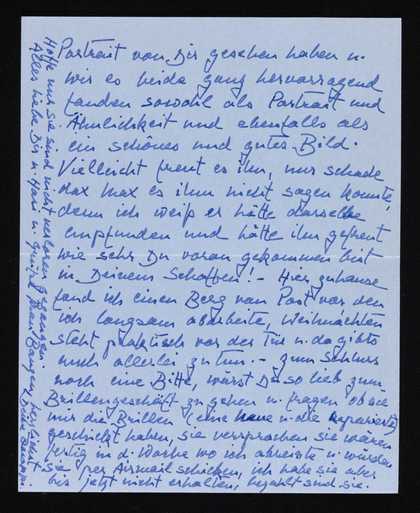 Portrait von Dir gesehen haben u.
wir es beide ganz hervorragend
fanden sowohl als Portrait und
Ähnlichkeit und ebenfalls als
ein schönes und gutes Bild.
Vielleicht freut es ihn, nur schade
dax Max es ihm nicht sagen konnte,
denn ich weiß er hätte dasselbe
empfunden und hätte ihn gefreut
wie sehr Du voran gekommen bist
in Deinem Schaffen! - Hier zuhause
fand ich einen Berg von Post vor den
ich langsam abarbeite, Weihnachten
steht praktisch vor der Tür u. da gibts
noch allerlei zu tun. - zum Schluss
noch eine Bitte, wärst Du so lieb zum
Brillengeschäft zu gehen u. fragen ob sie
mir die Brillen (eine neue u. die reparierte)
geschickt haben, sie versprachen sie wären
fertig in d. Woche wo ich abreiste u. würden
sie per Airmail schicken, ich habe sie aber
bis jetzt nicht erhalten, bezahlt sind sie.
Hoffe nur sie sind nicht verloren gegangen.
Alles liebe Dir u. Mari u. grüsse Frau Bangen herzlichst
Deine